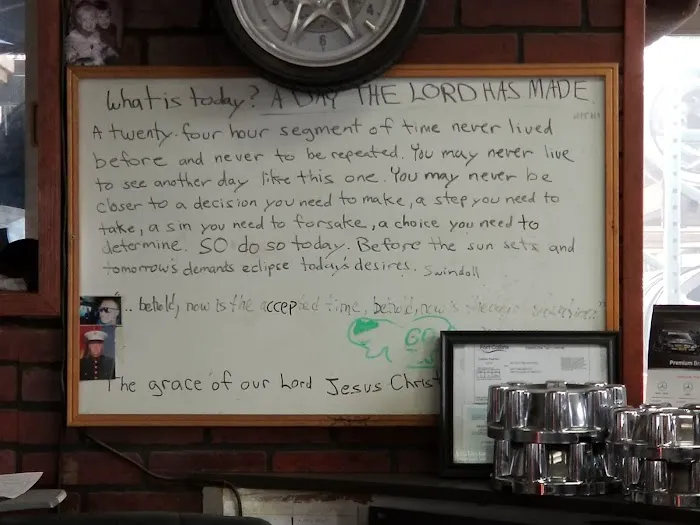 What is today? A DAY THE LORD HAS MADE.
A twenty-four hour segment of time never lived
before and never to be repeated. You may never live
to see another day like this one. You may never be
closer to a decision you need to make, a step you need to
take, a sin you need to forsake, a choice you need to
determine. SO do so today. Before the sun sets and
tomorrow's demands eclipse today's desires. Swindoll
".. behold, now is the accepted time, behold, now is the
GO
The grace of our Lord Jesus Christ